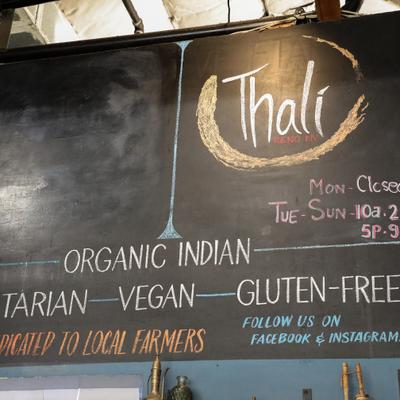 Thalí
RENO NV
MON-Closed
TUE-SUN-10a-2
5P-9
ORGANIC INDIAN
TARIAN—VEGAN—GLUTEN-FREE
DICATED TO LOCAL FARMERS
FOLLOW US ON
FACEBOOK & INSTAGRAM